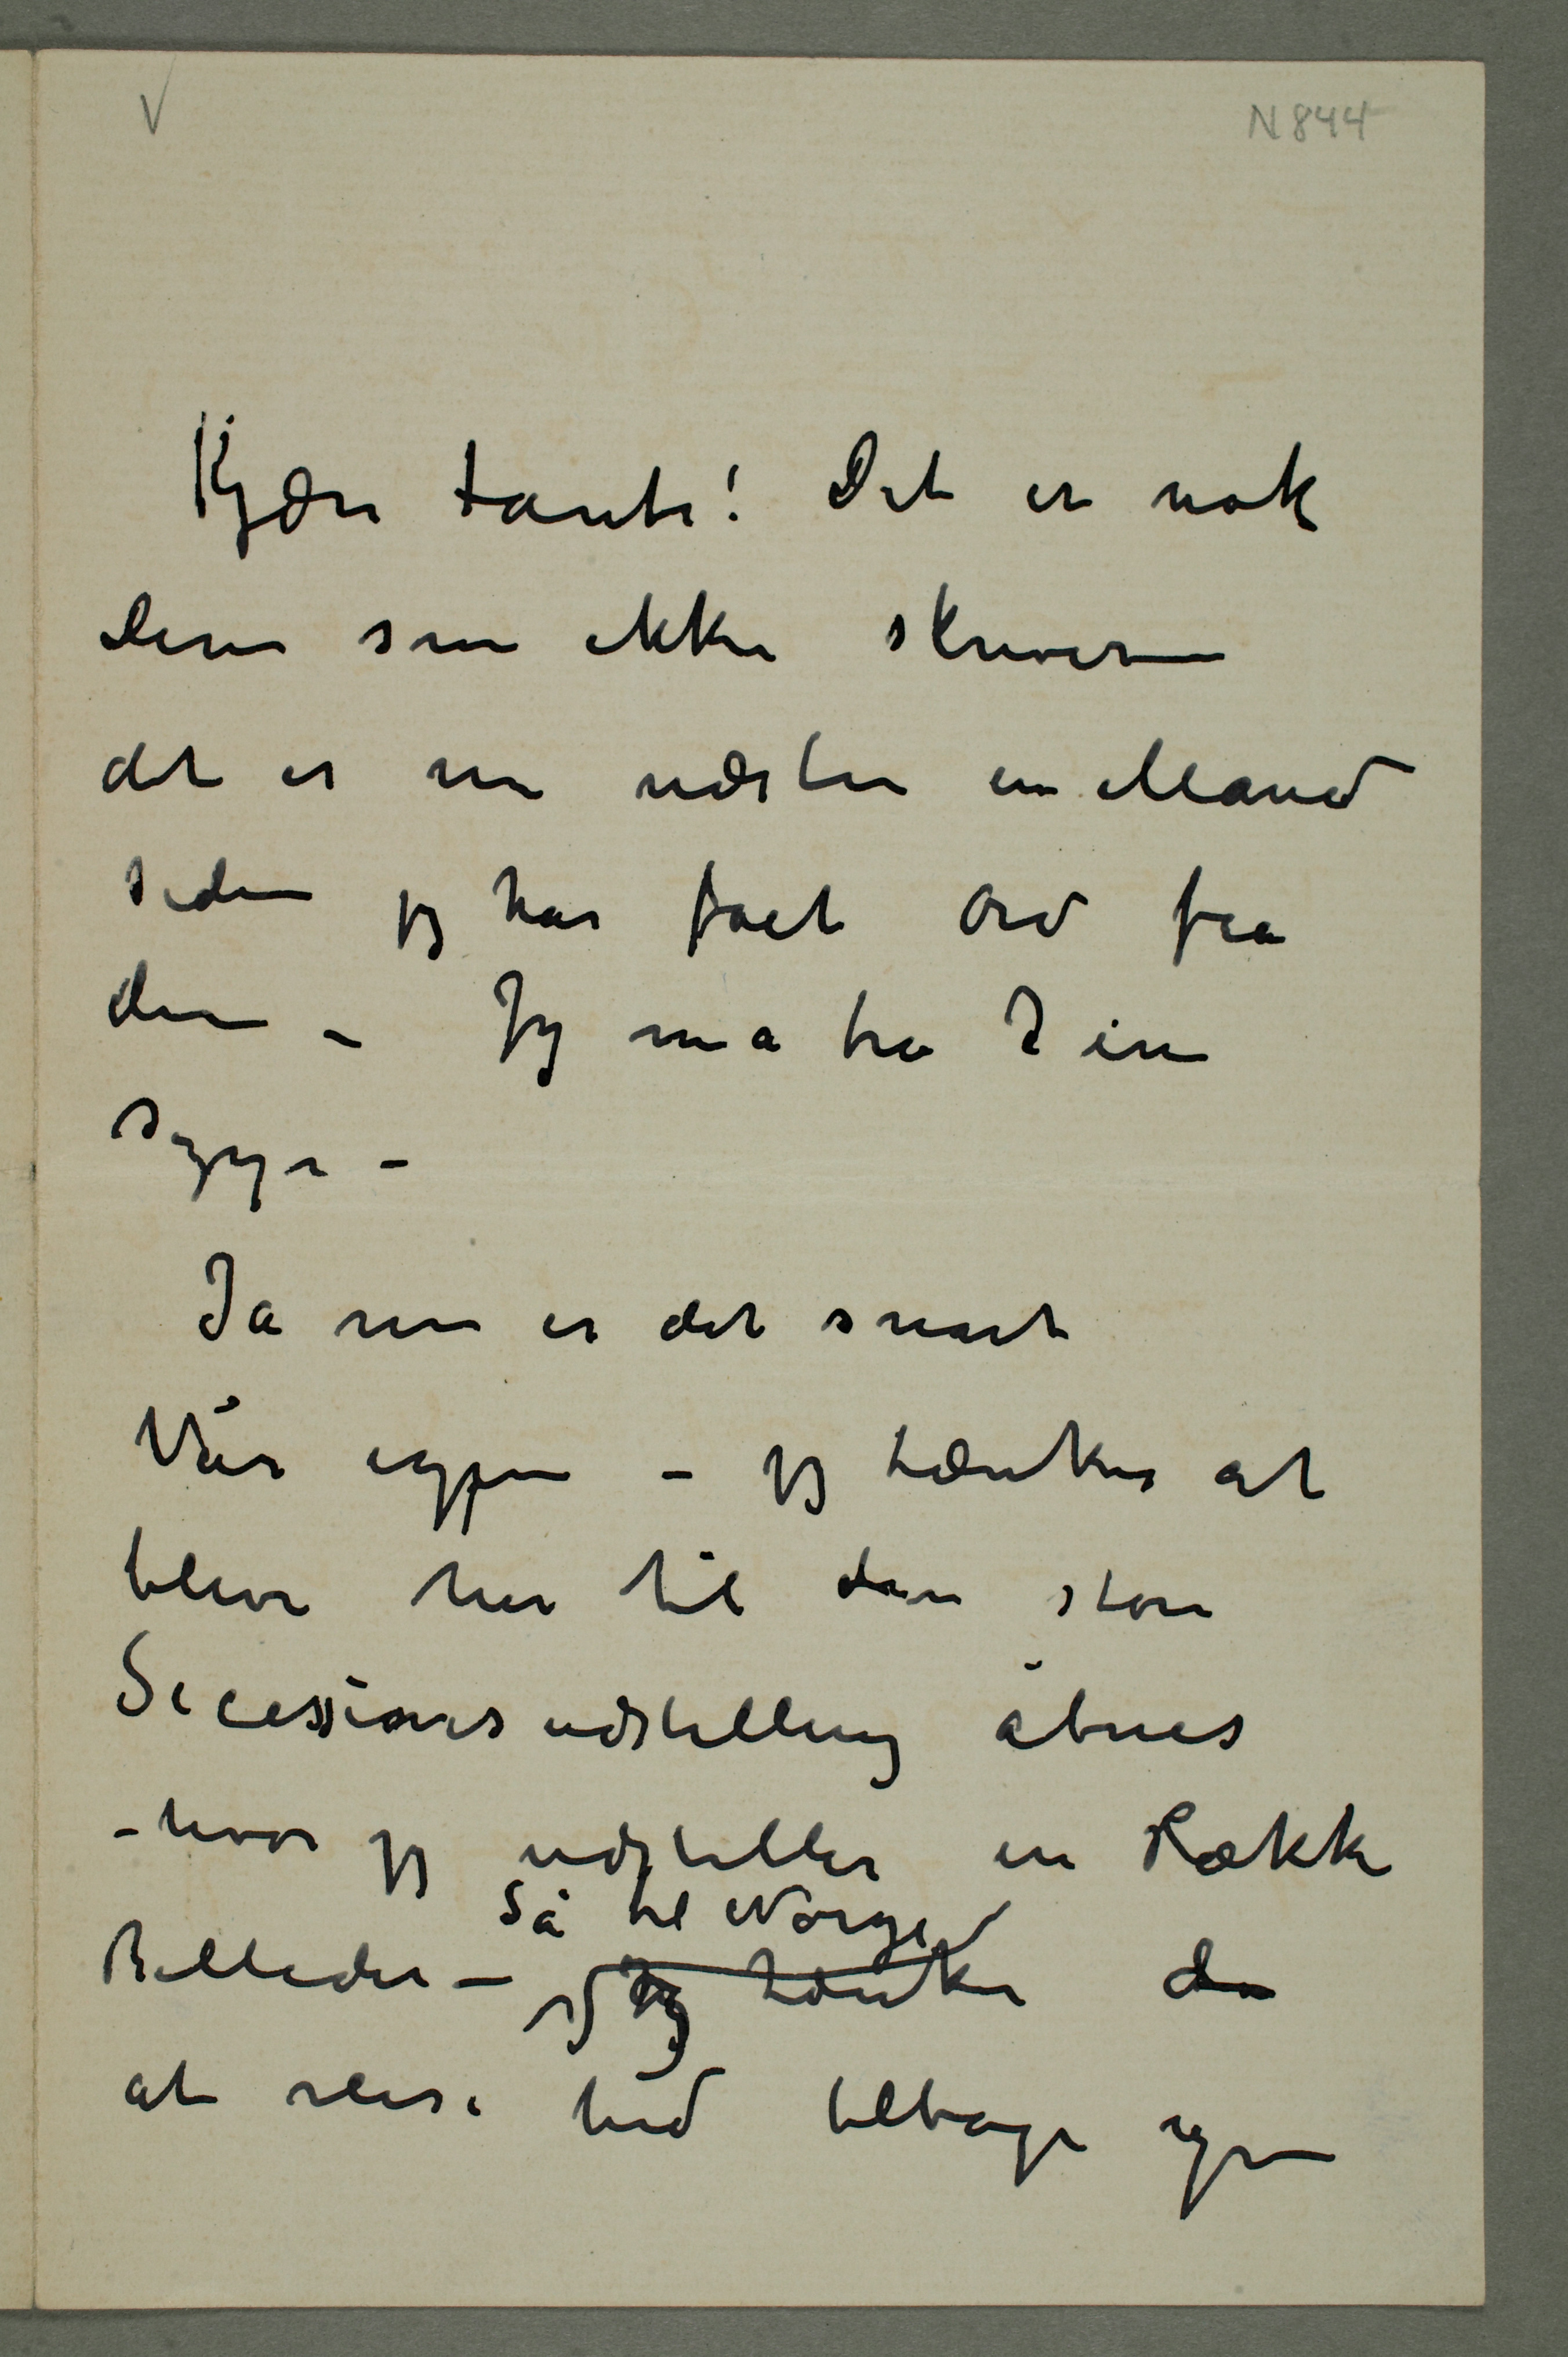 V
N 844
Kjære tante! Det er nok
dere som ikke skriver –
det er nu næsten en Maaned
siden jeg har faaet ord fra
dere – Jeg må tro I ere
syge –
Ja nu er det snart
Vår igjen – jeg tænker at
blive her til den store
Secessionsudstilling åbnes
– hvor jeg udstiller en Række
Så til Norge
Billeder – Jeg tænker da
at reise hid tilbage igjen